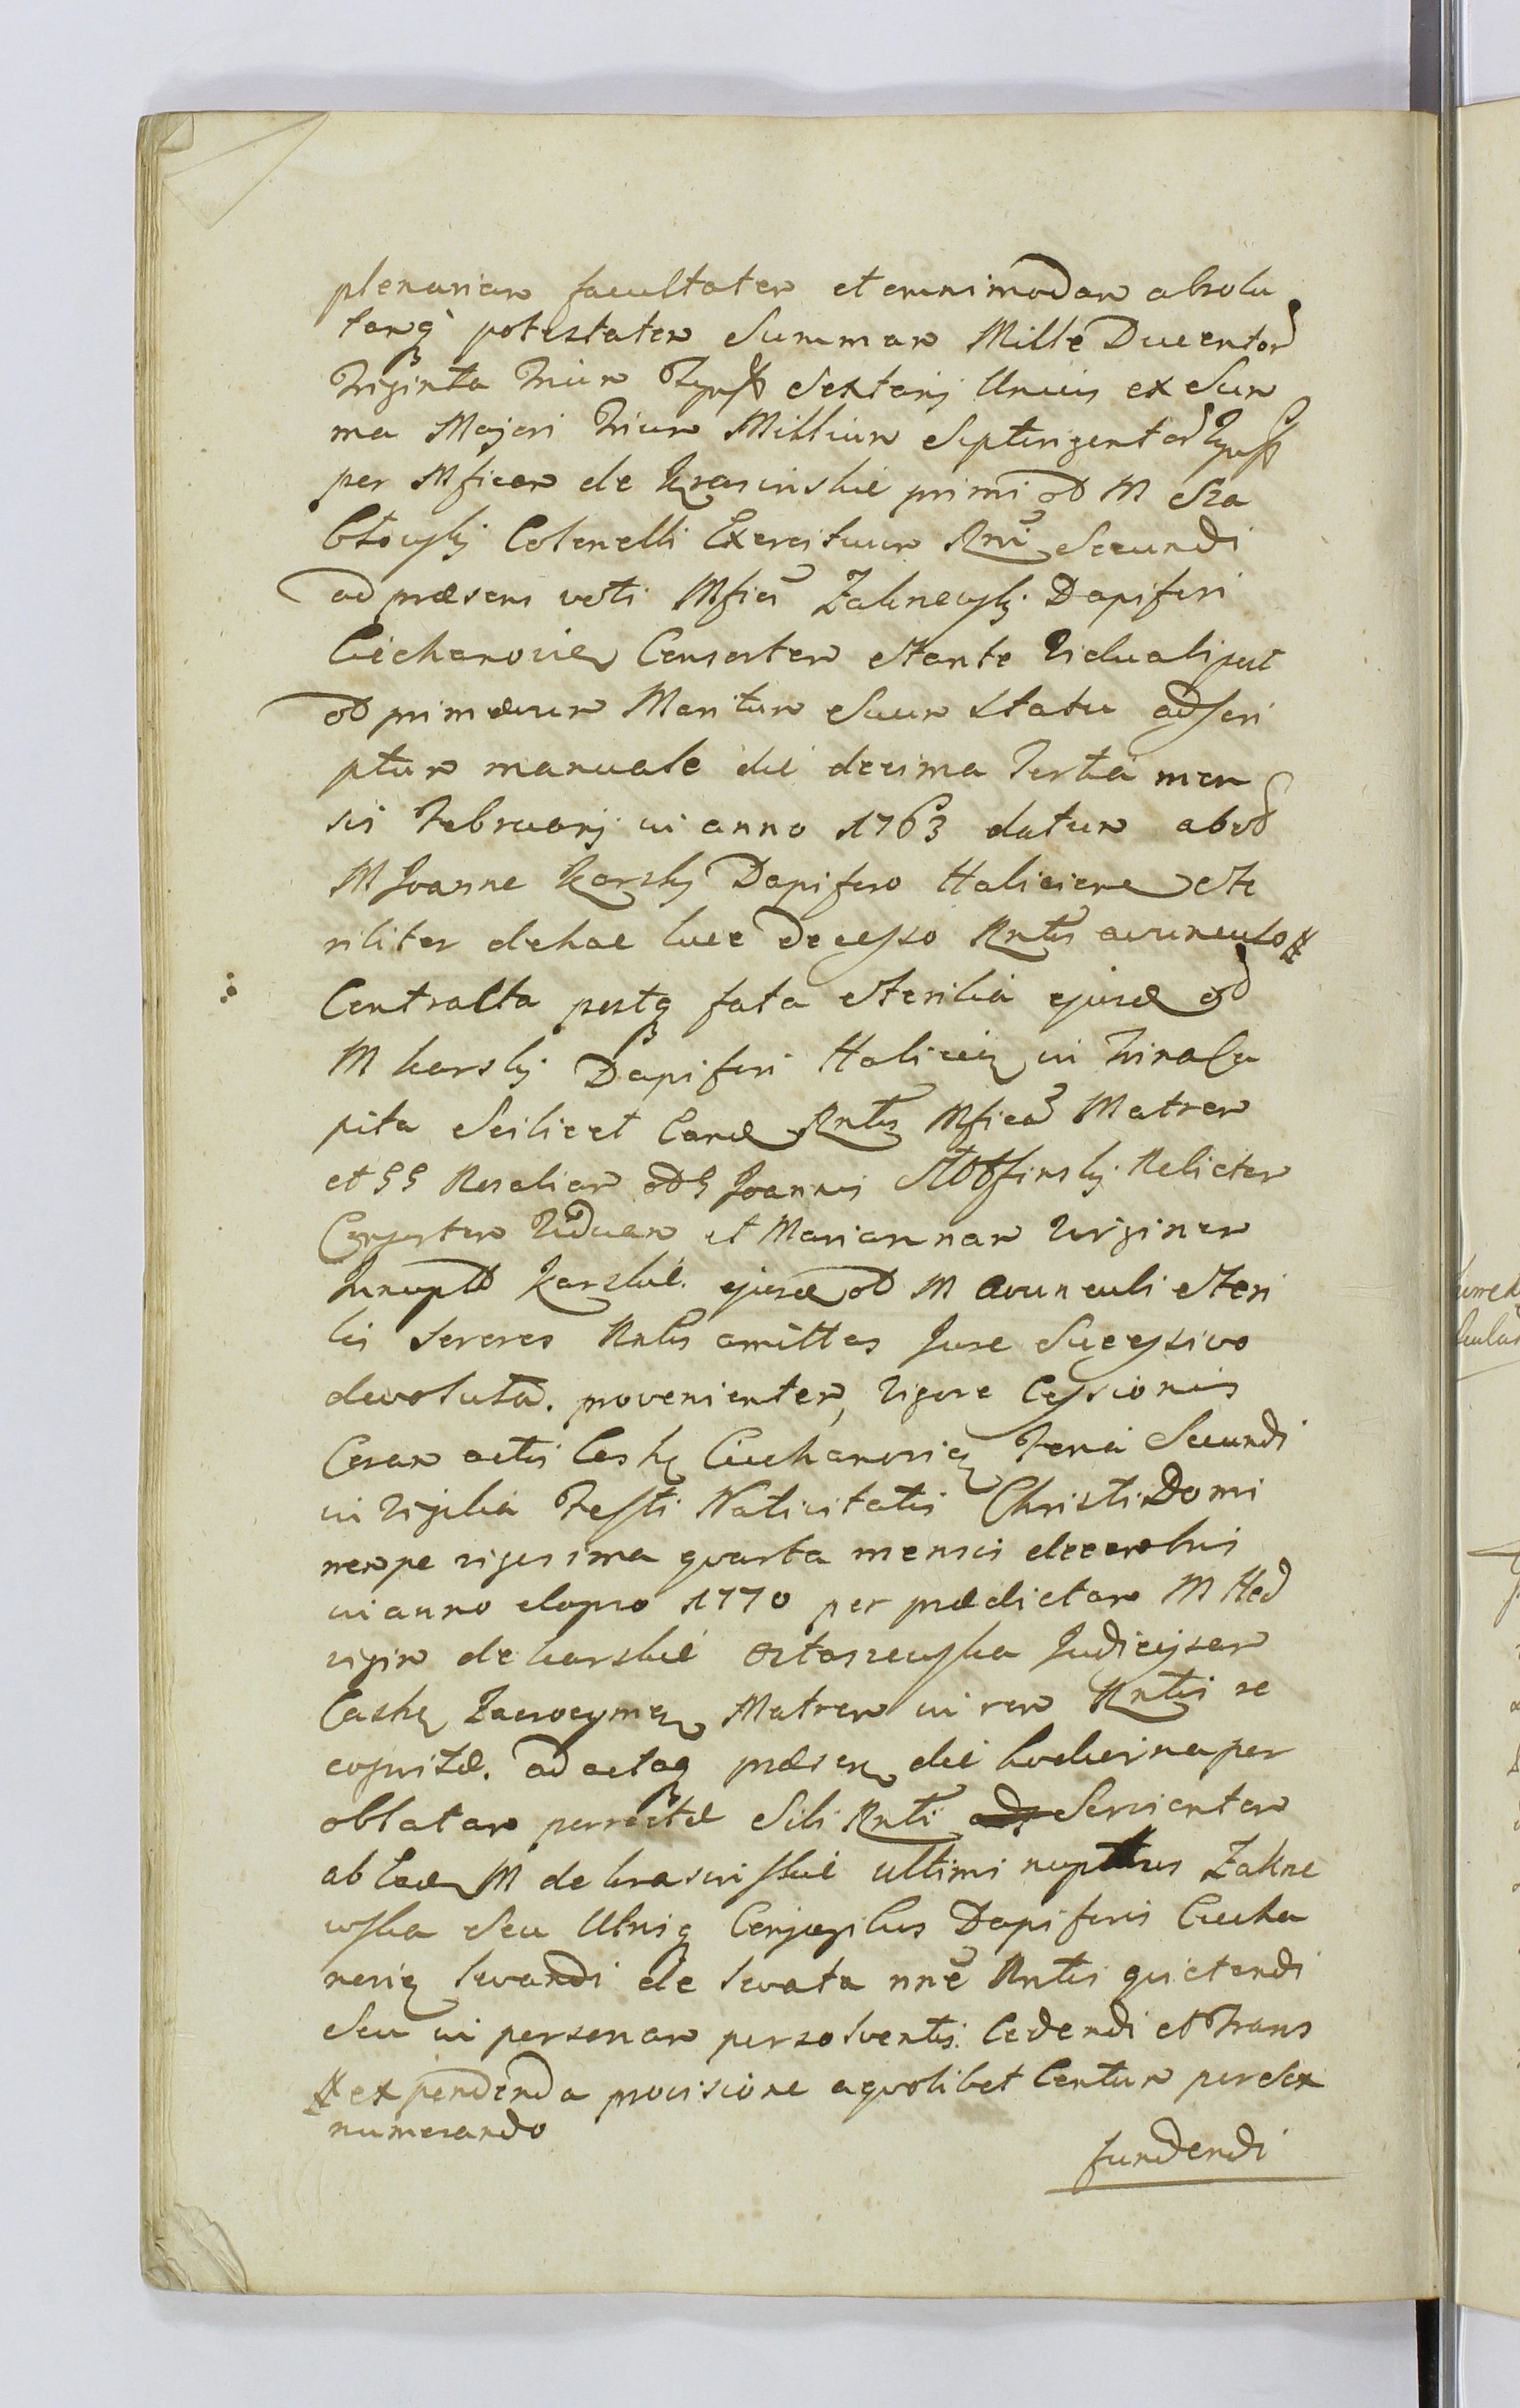 plenariam facultatem et omnimodam absolu
tamq potestatem Summam Mille Ducentor
Triginta Trium Tympf Sextarij Unius ex Sum
ma Majori Trium Millium Septingentor Tympf
per Mficam de Krasinskie primi od M Sza
błowskij Colonelli Exercituum Rni Secundi
ad præsens voti Mfici Zakrzewskij Dapiferi
Ciechanovien Consortem stante Viduali post
od primævum Maritum Suum Statu adscri
ptum manuale die decima Tertia men
sis Februarij in anno 1763 datum ab od
M Joanne Karskij Dapifero Halicien Ste
riliter de hac luce decesso Rntis avunculo
Contracta postq fata Sterilia ejusd od
M Karskij Dapiferi Halicien in Trina Ca
pita Scilicet Eand Rntis Mficā Matrem
et GG Rosaliam od G Joannis Relictam
Consortem Viduam et Mariannam Virginem
Innuptā Karskie ejusd od M avunculi Steri
lis Sorores Rntis amittas Jure Successivo
devoluta. provenientem, vigore Cessionis
Coram actis Cash Ciechanovien Feria Secunda
in Vigilia Festi Nativitatis Christi Domi
nempe vigesima quarta mensis decembris
in anno elapso 1770 per prædictam M Hed
vigim de Karskie Ostaszewska Judicissam
Cashem Zacrocymen Matrem in rem Rntis re
cognitæ. ad actaq præsen die hodierna per
oblatam porrectæ Sibi Rnti Servientem
ab Ead M de Krasinskie ultimi nuptus Zakrze
wska Seu Utrisq Conjugibus Dapiferis Ciecha
novien levandi de levata nne Rntis quietandi
Seu in personam persolventis. Cedendi et Trans
expendenda provisione a quolibet Centum per Sex
numerando
fundendi